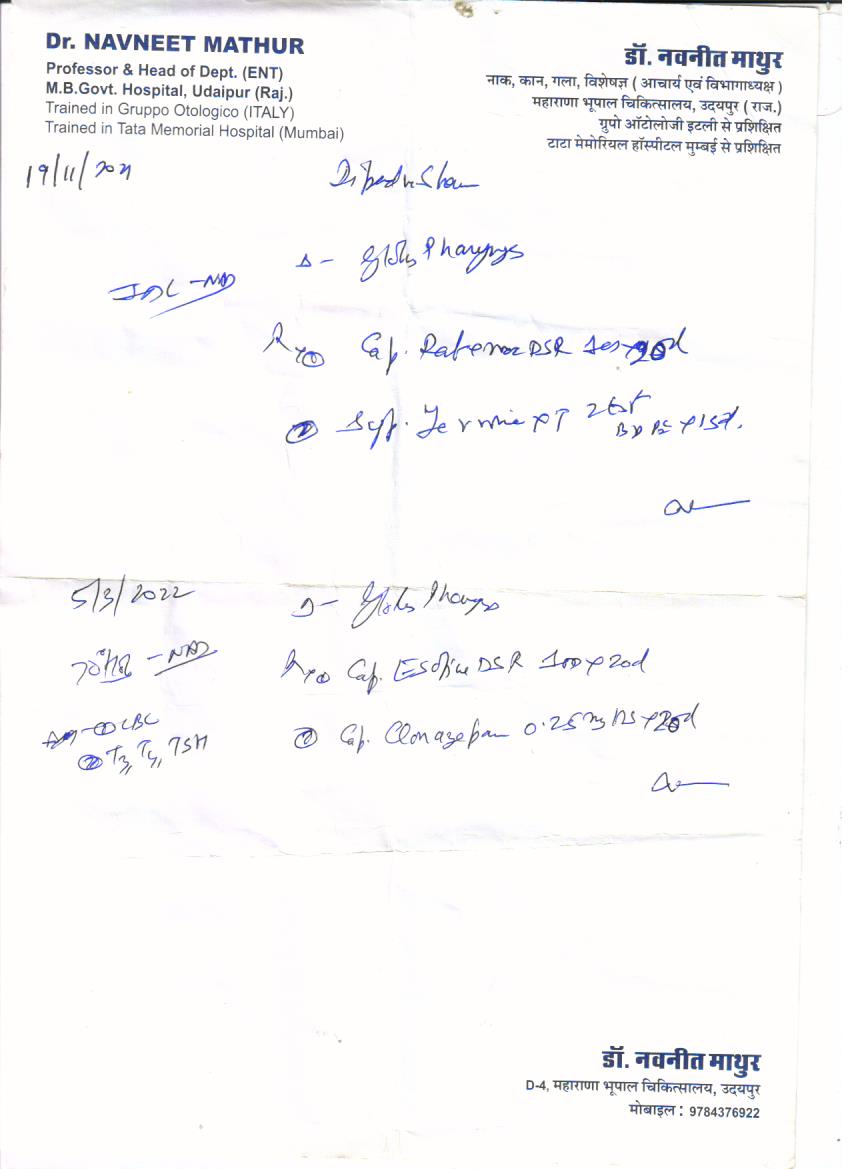 Dr. NAVNEET MATHUR
Professor & Head of Dept. (ENT)
M.B.Govt. Hospital, Udaipur (Raj.)
Trained in Gruppo Otologico (ITALY)
Trained in Tata Memorial Hospital (Mumbai)
डॉ. नवनीत माथुर
नाक, कान, गला, विशेषज्ञ ( आचार्य एवं विभागाध्यक्ष )
महाराणा भूपाल चिकित्सालय, उदयपुर ( राज.)
ग्रुपो ऑटोलोजी इटली से प्रशिक्षित
टाटा मेमोरियल हॉस्पीटल मुम्बई से प्रशिक्षित
19/11/2021
Globus Pharyngs
IDL - NAD
Rx ① Cap. DSR
② Syp. 2tsf
BD x 15d.
5/3/2022
Globus Pharyngs
70° - NAD
Rx ① Cap. DSR 1OD x 20d
① CBC
② Cap. Clonazepam 0.25mg HS x 20d
② T3, T4, TSH
डॉ. नवनीत माथुर
D-4, महाराणा भूपाल चिकित्सालय, उदयपुर
मोबाइल : 9784376922